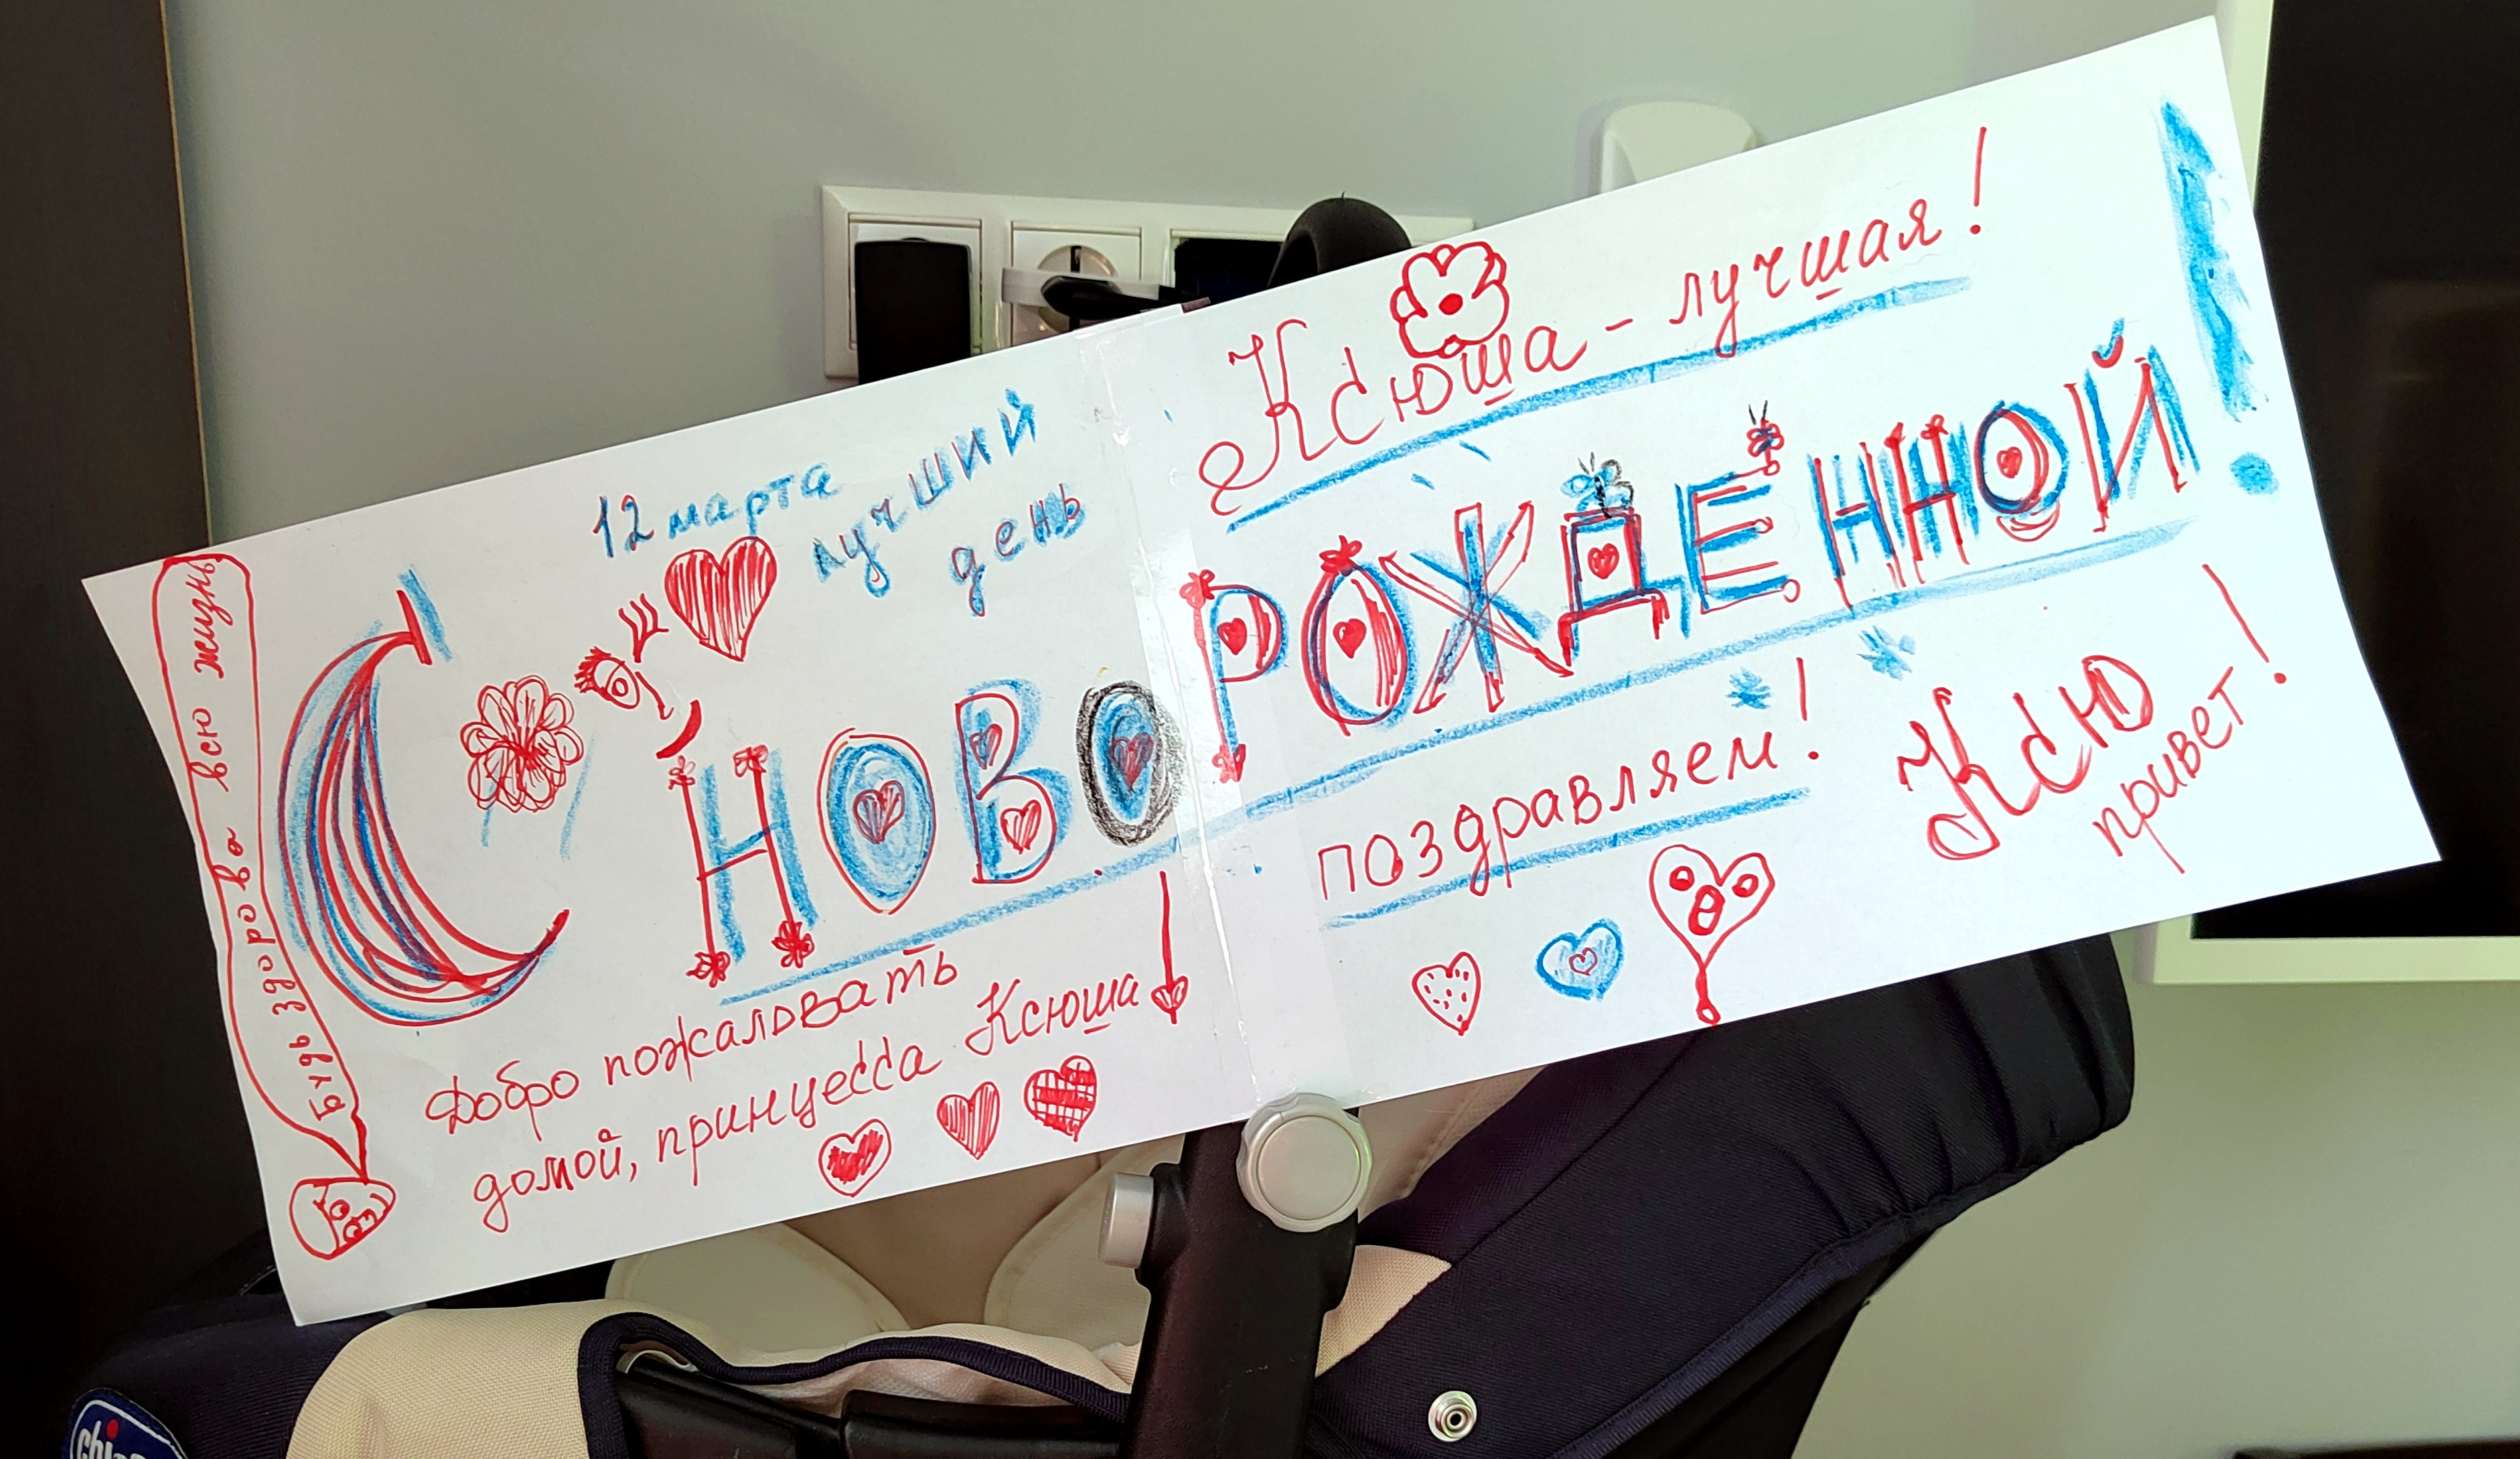 Будь здорова всю жизнь
12 марта
лучший
день
Ксюша - лучшая!
С НОВОРОЖДЕННОЙ!
Добро пожаловать
домой, принцесса Ксюша
поздравляем!
Ксю
привет!